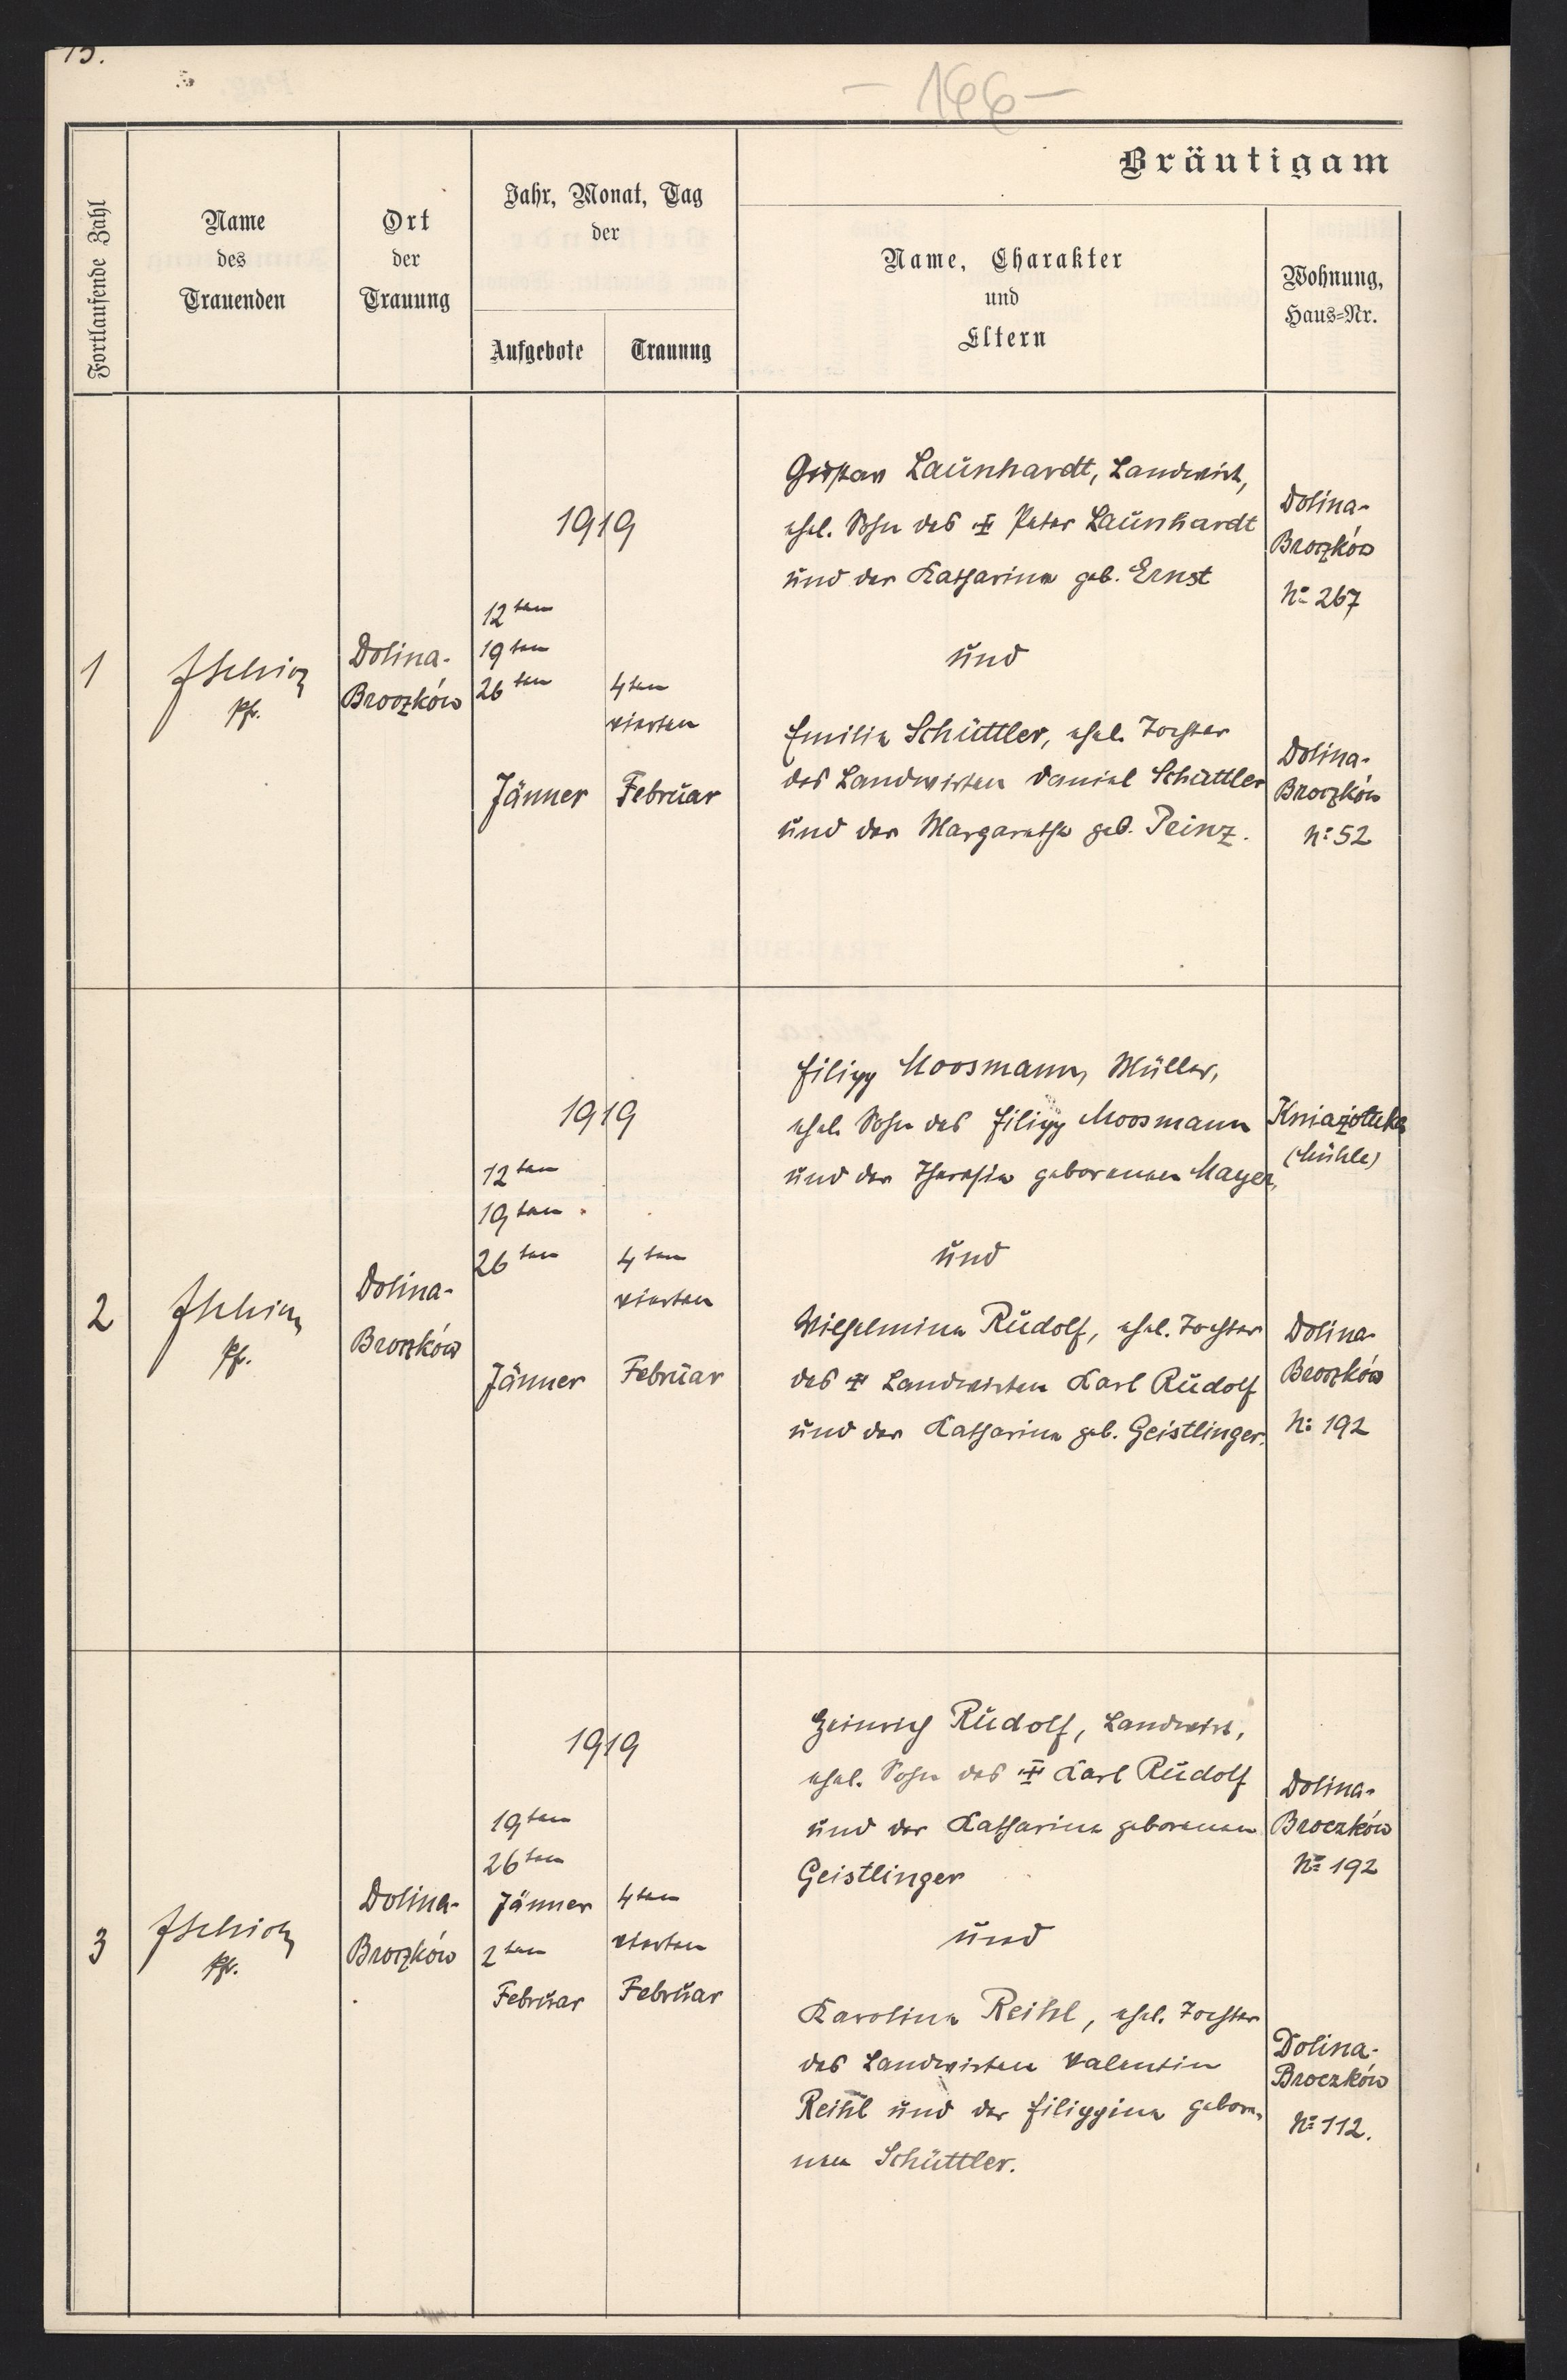 – 166 –
Bräutigam
Fortlaufende Zahl
Name
des
Trauenden
Ort
der
Trauung
Jahr, Monat, Tag
der
Aufgebote
Trauung
Name, Charakter
und
Eltern
Wohnung,
Haus-Nr.
1
Pfr.
Dolina-
Broczków
1919
12ten
19ten
26ten
Jänner
4ten
vierten
Februar
Gustav Launhardt, Landwirt,
ehel. Sohn des ✝ Peter Launhardt
und der Katharina geb. Ernst
und
Emilie Schüttler, ehel. Tochter
des Landwirten Daniel Schüttler
und der Margarethe geb. Peinz.
Dolina-
Broczków
No 267
Dolina-
Broczków
No 52
2
Pfr.
Dolina-
Broczków
1919
12ten
19ten
26ten
Jänner
4ten
vierten
Februar
Filipp Moosmann, Müller,
ehel. Sohn des Filipp Moosmann
und der Theresia geborenen Mayer,
und
Wilhelmine Rudolf, ehel. Tochter
des ✝ Landwirten Karl Rudolf
und der Katharina geb. Geistlinger.
(Mühle)
Dolina-
Broczków
No 192
3
Pfr.
Dolina-
Broczków
1919
19ten
26ten
Jänner
2ten
Februar
4ten
vierten
Februar
Heinrich Rudolf, Landwirt,
ehel. Sohn des ✝ Karl Rudolf
und der Katharina geborenen
Geistlinger
und
Karolina Reihl, ehel. Tochter
des Landwirten Valentin
Reihl und der Filippina gebore-
nen Schüttler.
Dolina-
Broczków
No 192
Dolina-
Broczków
No 112.